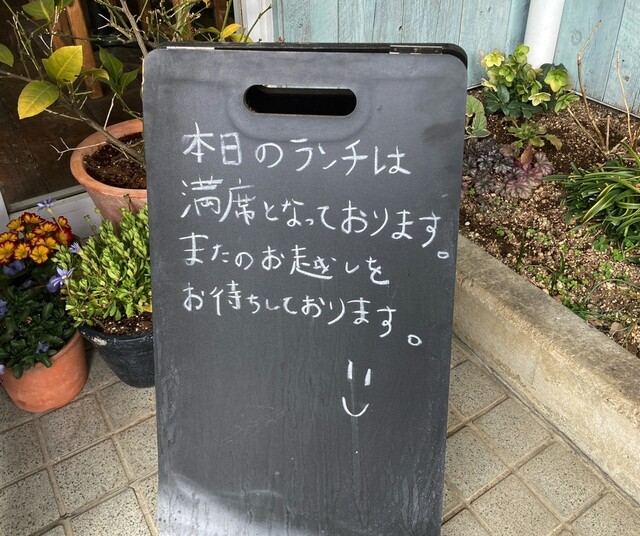 本日のランチは
満席となっております。
またのお越しを
お待ちしております。